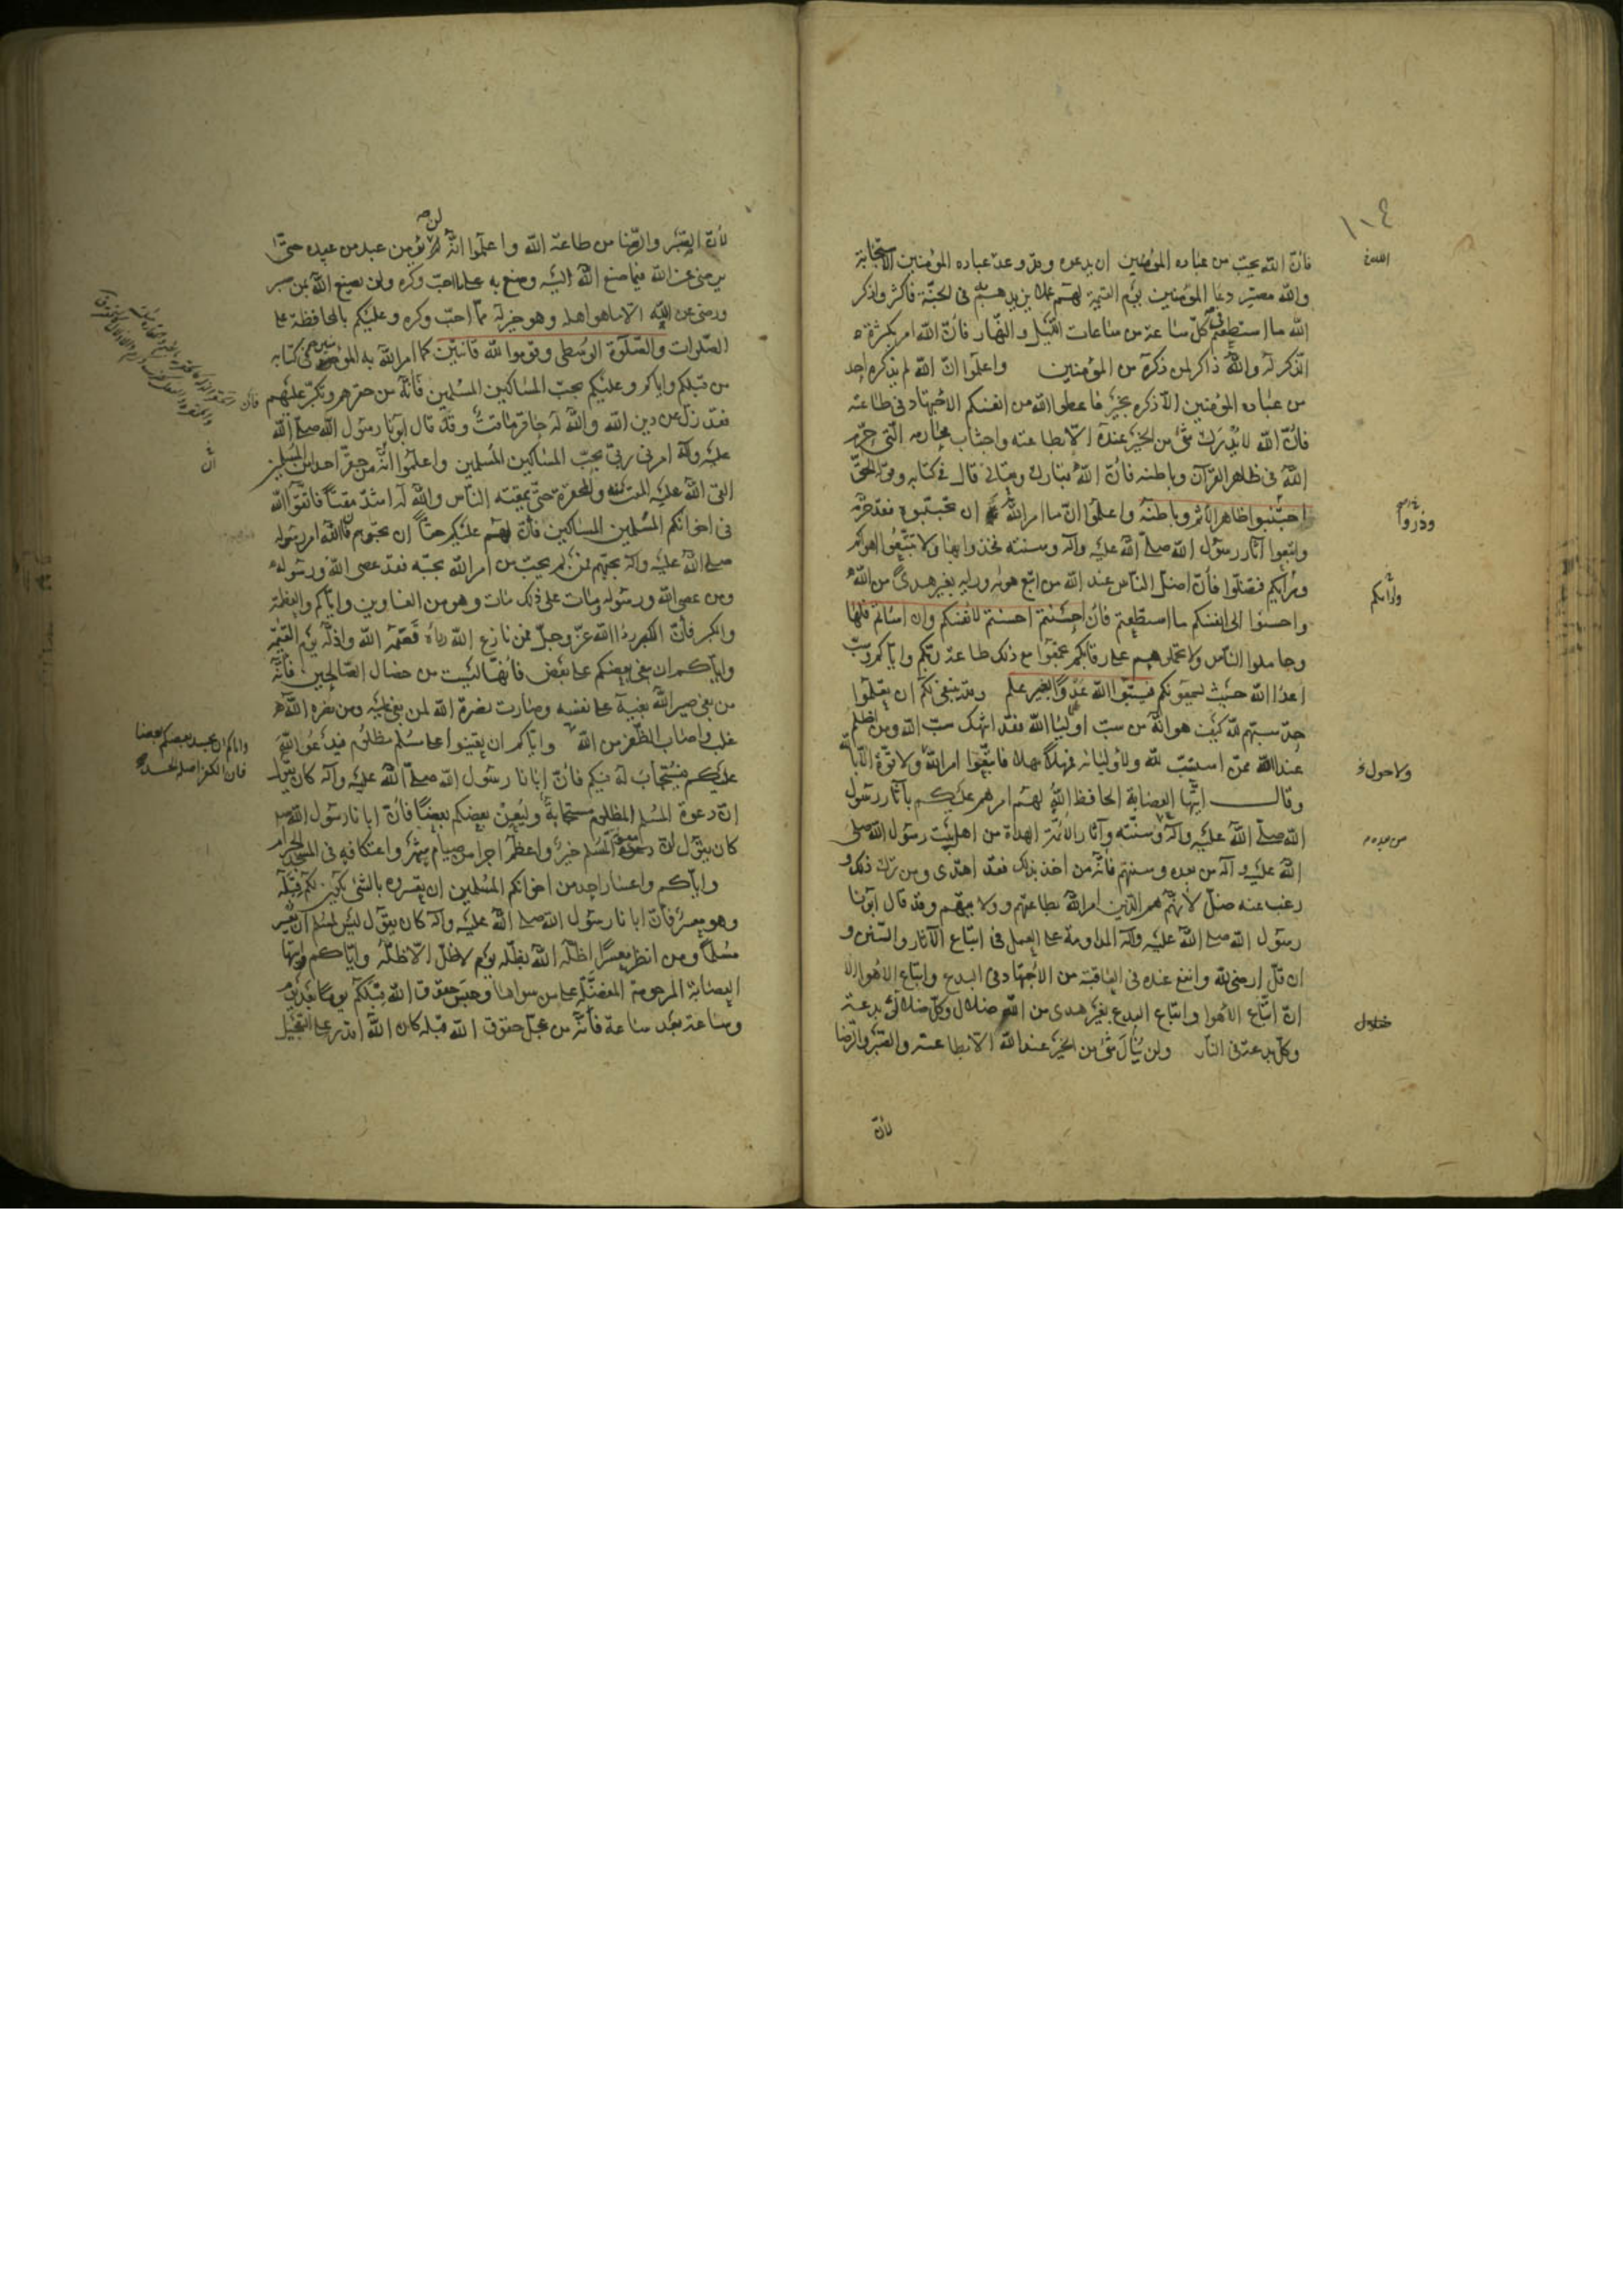 ١٠٤
فان الله يحب من عباده المؤمنين ان يدعوه وقد وعد عباده المؤمنين الاستجابة
والله مصير دعاء المؤمنين يوم القيمة لهم عملا يزيدهم به في الجنة فاكثروا ذكر
الله ما استطعتم في كل ساعة من ساعات الليل والنهار فان الله امر بكثرة
الذكر له والله ذاكر لمن ذكره من المؤمنين واعلموا ان الله لم يذكره احد
من عباده المؤمنين الا ذكره بخير فاعطوا الله من انفسكم الاجتهاد في طاعته
فان الله لا يدرك شئ من الخير عنده الا بطاعته واجتناب محارمه التي حرم
الله في ظاهر القرآن وباطنه فان الله تبارك وتعالى قال في كتابه وقوله الحق
وذروا
اجتنبوا ظاهر الاثم وباطنه واعلموا ان ما امر الله ان تجتنبوه فقد حرمه
واتبعوا آثار رسول الله صلى الله عليه وآله وسنته فخذوا بها ولا تتبعوا اهواكم
ورأيكم فتضلوا فان اضل الناس عند الله من اتبع هواه ورايه بغير هدى من الله
واحسنوا الى انفسكم ما استطعتم فان احسنتم احسنتم لانفسكم وان اسأتم فلها
وجاملوا الناس ولا تحملوهم على رقابكم تجمعوا مع ذلك طاعة ربكم واياكم وسب
اعداء الله حيث يسمعونكم فيسبوا الله عدوا بغير علم وقد ينبغي لكم ان تعلموا
حد سبهم لله كيف هو انه من سب اولياء الله فقد انتهك سب الله ومن اظلم
عند الله ممن استسب لله ولاوليائه فمهلا مهلا فاتبعوا امر الله ولا قوة الا بالله
ولا حول
وقال ايتها العصابة الحافظ الله لهم امرهم عليكم بآثار رسول
الله صلى الله عليه وآله وسنته وآثار الائمة الهداة من اهل بيت رسول الله صلى
من بعده
الله عليه وآله من بعده وسنتهم فانه من اخذ بذلك فقد اهتدى ومن ترك ذلك و
رغب عنه ضل لانهم هم الذين امر الله بطاعتهم وولايتهم وقد قال ابونا
رسول الله صلى الله عليه وآله المداومة على العمل في اتباع الآثار والسنن و
ان قل ارضى لله وانفع عنده في العاقبة من الاجتهاد في البدع واتباع الاهواء الا
ان اتباع الاهوا واتباع البدع بغير هدى من الله ضلال وكل ضلالة بدعة
ضلال
وكل بدعة في النار ولن ينال شئ من الخير عند الله الا بطاعته والصبر والرضا
لان
لان الصبر والرضا من طاعة الله واعلموا انه لن يؤمن عبد من عبيده حتى
يرضى عن الله فيما صنع الله اليه وصنع به على ما احب وكره ولن يصنع الله بمن صبر
ورضى عن الله الا ما هو اهله وهو خير له مما احب وكره وعليكم بالمحافظة على
الصلوات والصلوة الوسطى وقوموا لله قانتين كما امر الله به المؤمنين في كتابه
من قبلكم واياكم وعليكم بحب المساكين المسلمين فانه من حقرهم وتكبر عليهم
فقد زل عن دين الله والله له حاقر ماقت وقد قال ابونا رسول الله صلى الله
عليه وآله امرني ربي بحب المساكين المسلمين واعلموا انه من حقر احدا من المسلمين
القى الله عليه المقت منه والمحقرة حتى يمقته الناس والله له اشد مقتا فاتقوا الله
في اخوانكم المسلمين المساكين فان لهم عليكم حقا ان تحبوهم فان الله امر رسوله
صلى الله عليه وآله بحبهم فمن لم يحب من امر الله بحبه فقد عصى الله ورسوله
ومن عصى الله ورسوله ومات على ذلك مات وهو من الغاوين واياكم والعظمة
والكبر فان الكبر رداء الله عز وجل فمن نازع الله رداه قصمه الله واذله يوم القيمة
واياكم ان يبغي بعضكم على بعض فانها ليست من خصال الصالحين فانه
من بغى صير الله بغيه على نفسه وصارت نصرة الله لمن بغى عليه ومن نصره الله
غلب واصاب الظفر من الله واياكم ان تعينوا على مسلم مظلوم فيدعو الله
واياكم ان يحسد بعضكم بعضا
فان الكفر اصله الحسد
عليكم فيستجاب له فيكم فان ابانا رسول الله صلى الله عليه وآله كان يقول
ان دعوة المسلم المظلوم مستجابة وليعن بعضكم بعضا فان ابانا رسول الله ص
كان يقول ان معونة المسلم خير واعظم اجرا من صيام شهر واعتكافه في المسجد الحرام
واياكم واعسار احد من اخوانكم المسلمين ان تعسروه بالشئ يكون لكم قبله
وهو معسر فان ابانا رسول الله صلى الله عليه وآله كان يقول ليس لمسلم ان يعسر
مسلما ومن انظر معسرا اظله الله بظله يوم لا ظل الا ظله واياكم وايتها
العصابة المرحومة المفضلة على من سواها وحبس حقوق الله قبلكم يوما بعد يوم
وساعة بعد ساعة فانه من عجل حقوق الله قبله كان الله اقدر على التعجيل